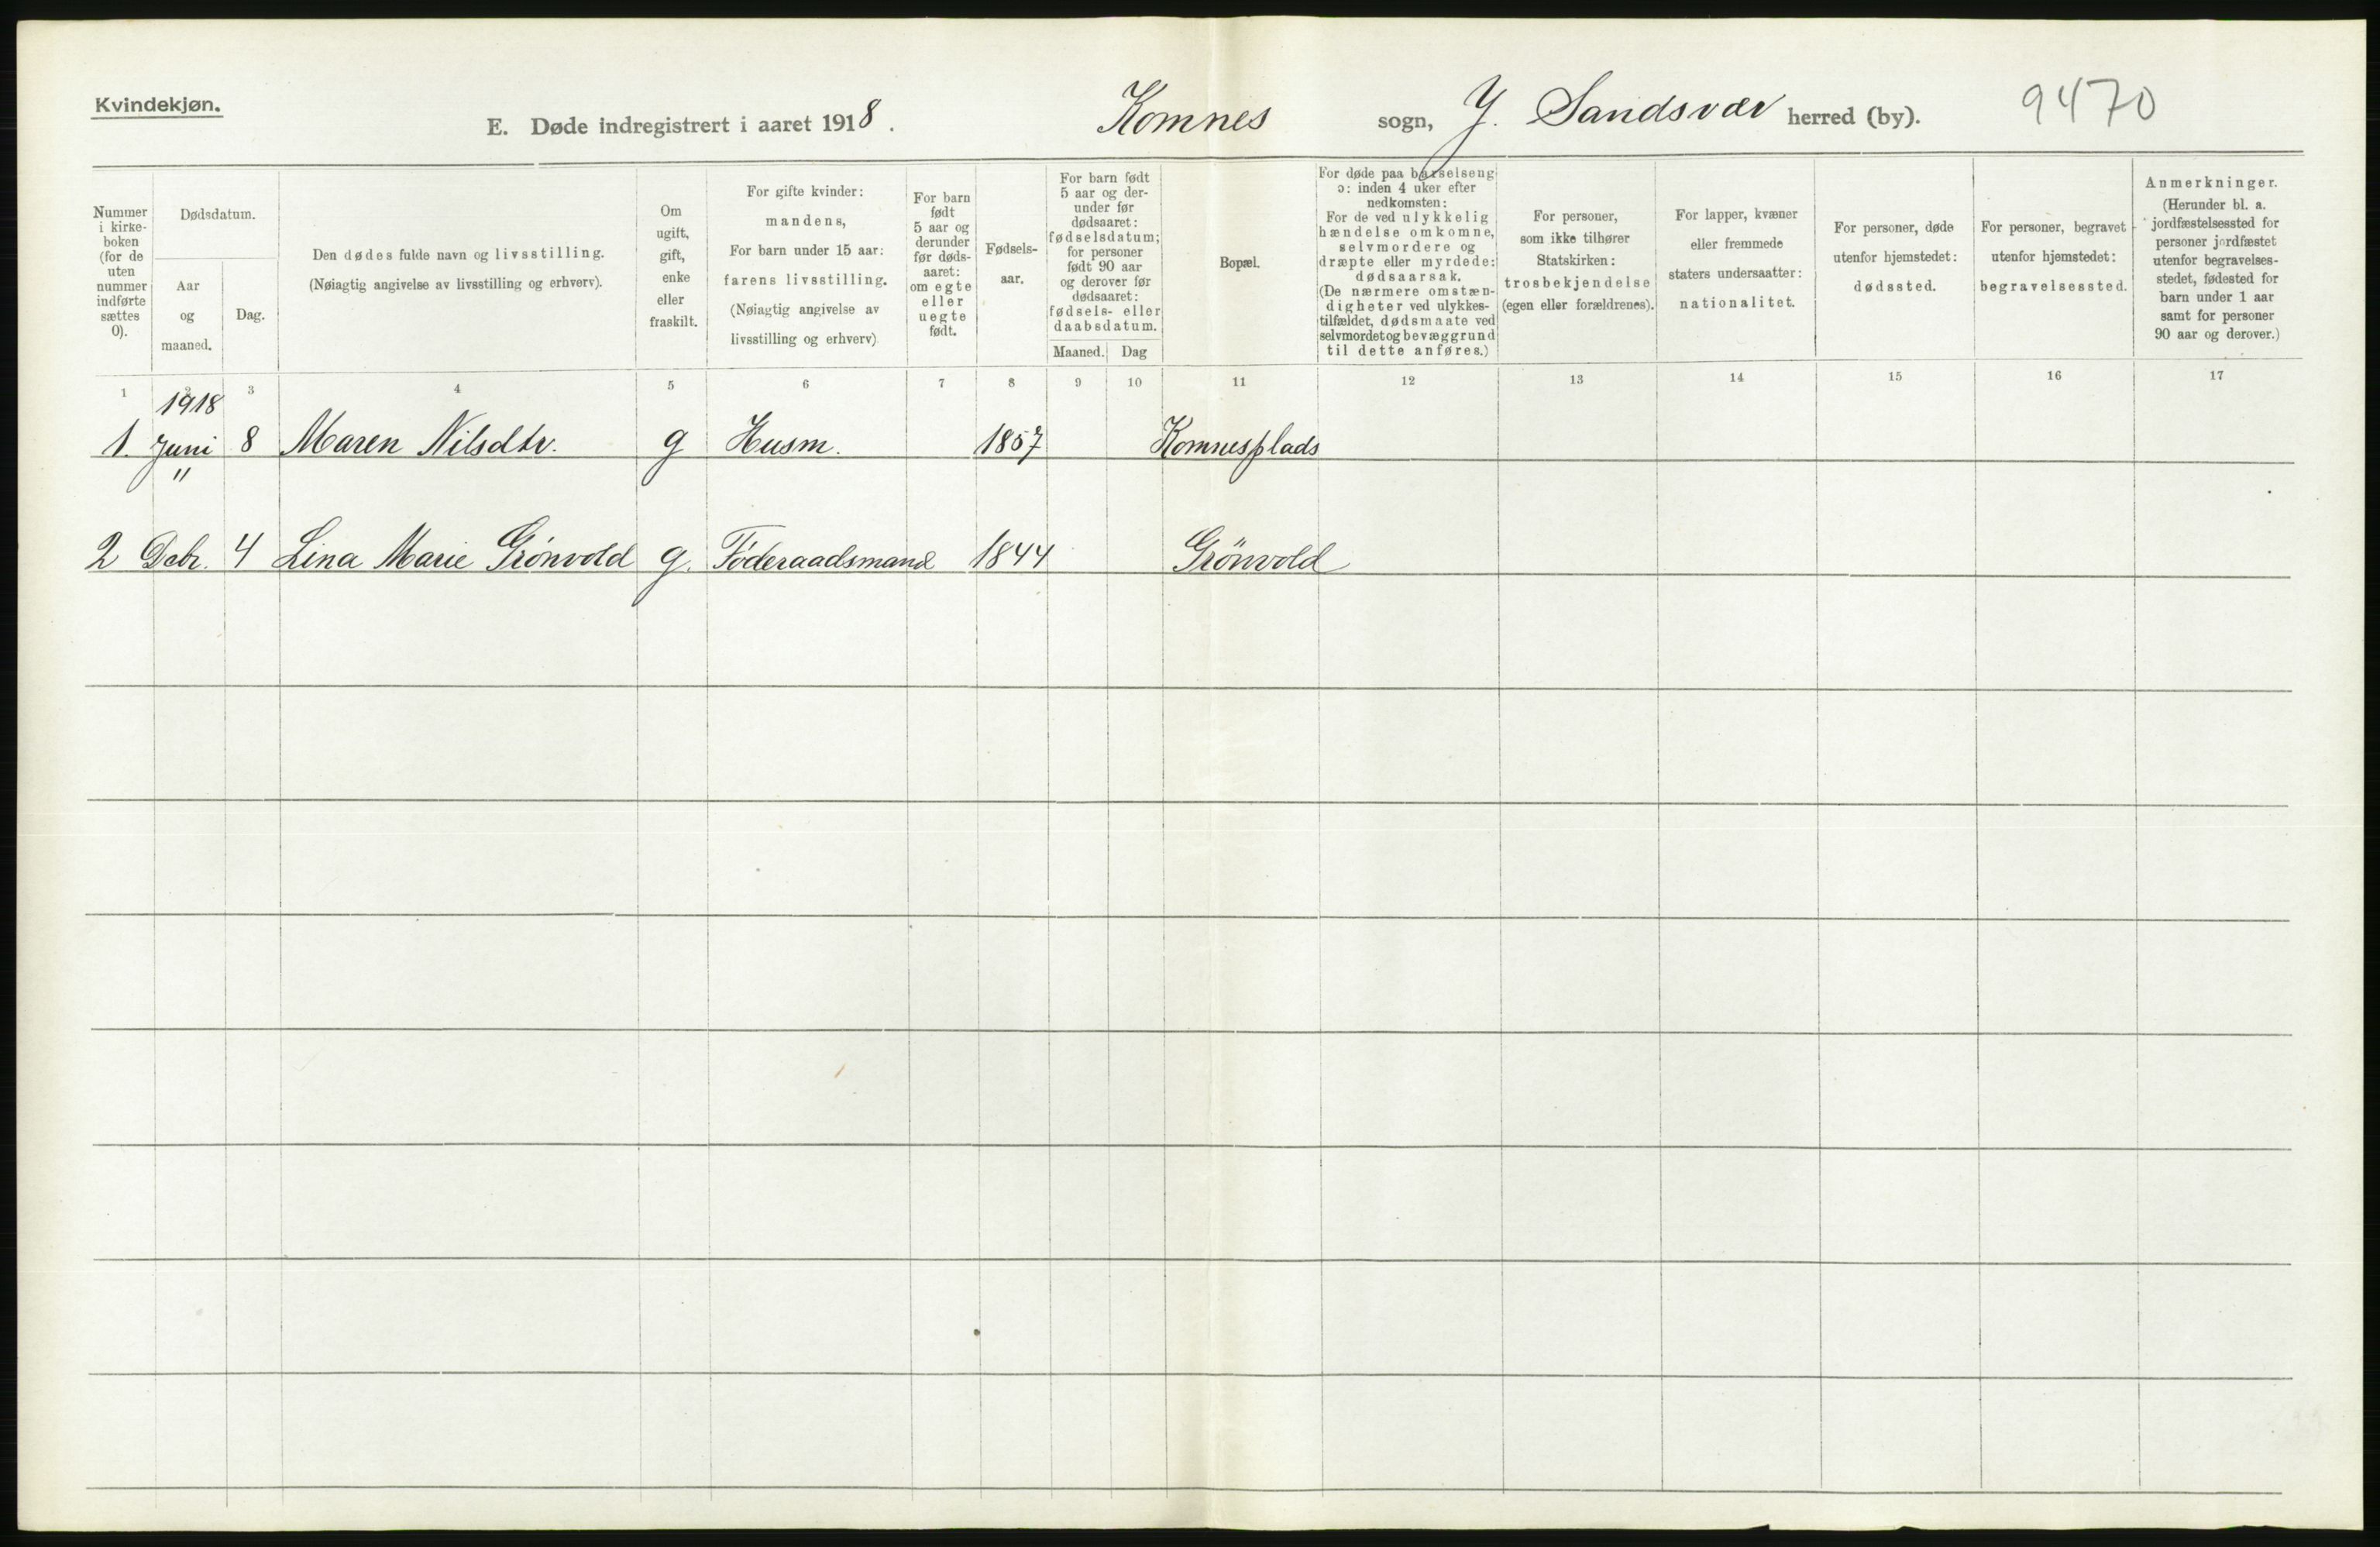 Kvindekjøn.
E. Døde indregistrert i aaret 1918. Komnes sogn, Y. Sandsvær herred (by). 9470
Nummer i kirke-boken (for de uten nummer indførte sættes 0).
Dødsdatum.
Aar og maaned.
Dag.
Den dødes fulde navn og livsstilling.
(Nøiagtig angivelse av livsstilling og erhverv).
Om ugift, gift, enke eller fraskilt.
For gifte kvinder:
mandens,
For barn under 15 aar:
farens livsstilling.
(Nøiagtig angivelse av
livsstilling og erhverv)
For barn født 5 aar og derunder før døds-aaret: om egte eller uegte født.
Fødsels-aar.
For barn født
5 aar og der-
under før
dødsaaret:
fødselsdatum;
for personer
født 90 aar
og derover før
dødsaaret:
fødsels- eller
daabsdatum.
Maaned. Dag
Bopæl.
For døde paa barselseng
ɔ: inden 4 uker efter
nedkomsten:
For de ved ulykkelig
hændelse omkomne,
selvmordere og
dræpte eller myrdede:
dødsaarsak.
(De nærmere omstæn-
digheter ved ulykkes-
tilfældet, dødsmaate ved
selvmordet og bevæggrund
til dette anføres.)
For personer,
som ikke tilhører
Statskirken:
trosbekjendelse
(egen eller forældrenes).
For lapper, kvæner
eller fremmede
staters undersaatter:
nationalitet.
For personer, døde
utenfor hjemstedet:
dødssted.
For personer, begravet
utenfor hjemstedet:
begravelsessted.
Anmerkninger.
(Herunder bl. a.
jordfæstelsessted for
personer jordfæstet
utenfor begravelses-
stedet, fødested for
barn under 1 aar
samt for personer
90 aar og derover.)
1 2 3 4 5 6 7 8 9 10 11 12 13 14 15 16 17
1918
1. Juni 8 Maren Nilsdtr. g Husm. 1857 Komnesplads
"
2 Debr. 4 Lina Marie Grönvold g. Föderaadsmand 1844 Grönvold